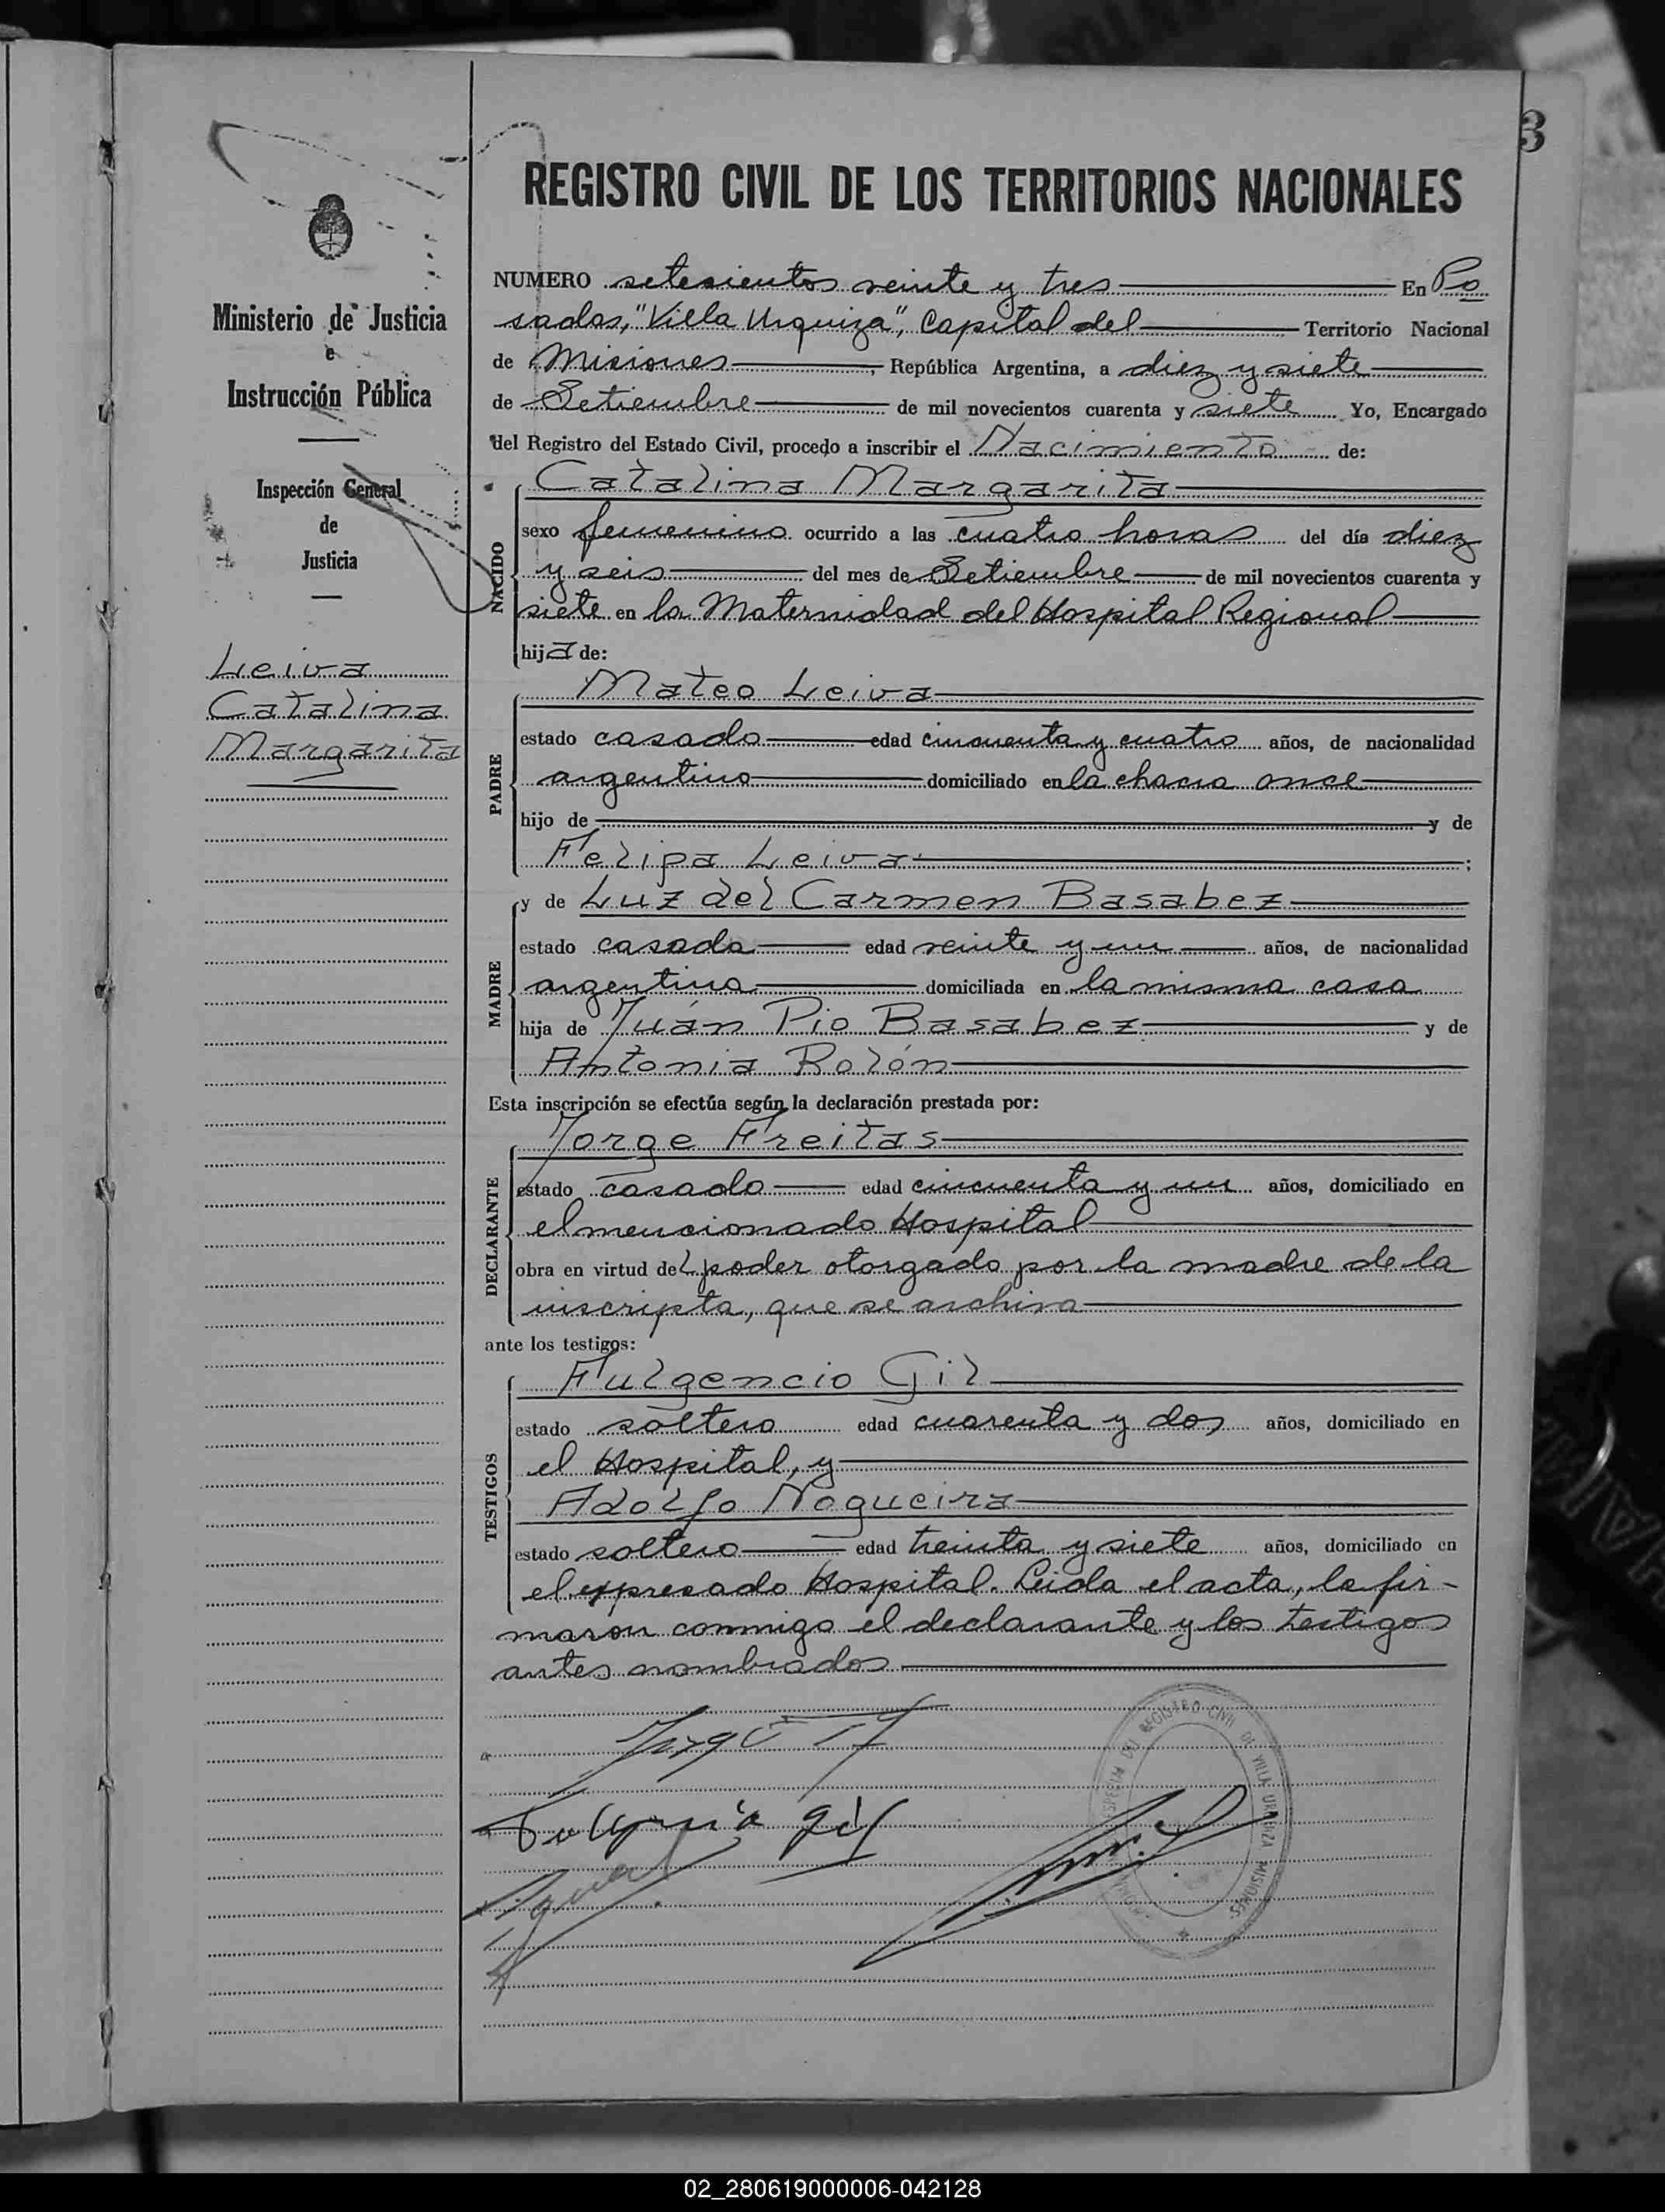 3
REGISTRO CIVIL DE LOS TERRITORIOS NACIONALES
Ministerio de Justicia
e
Instrucción Pública
Inspección General
de
Justicia
Leiva
Catalina
Margarita
NUMERO setecientos veinte y tres En Po
sadas, "Villa Urquiza", Capital del Territorio Nacional
de Misiones, República Argentina, a diez y siete
de Setiembre de mil novecientos cuarenta y siete Yo, Encargado
del Registro del Estado Civil, procedo a inscribir el Nacimiento de:
Catalina Margarita
NACIDO
sexo femenino ocurrido a las cuatro horas del día diez
y seis del mes de Setiembre de mil novecientos cuarenta y
siete en la Maternidad del Hospital Regional
hija de:
Mateo Leiva
PADRE
estado casado edad cincuenta y cuatro años, de nacionalidad
argentino domiciliado en la chacra once
hijo de y de
Felipa Leiva;
MADRE
y de Luz del Carmen Basabez
estado casada edad veinte y un años, de nacionalidad
argentina domiciliada en la misma casa
hija de Juán Pio Basabez y de
Antonia Rolón
Esta inscripción se efectúa según la declaración prestada por:
Jorge Freitas
DECLARANTE
estado casado edad cincuenta y un años, domiciliado en
el mencionado Hospital
obra en virtud del poder otorgado por la madre de la
inscripta, que se archiva
ante los testigos:
Fulgencio Gil
TESTIGOS
estado soltero edad cuarenta y dos años, domiciliado en
el Hospital, y
Adolfo Nogueira
estado soltero edad treinta y siete años, domiciliado en
el expresado Hospital. Leida el acta, la fir-
maron conmigo el declarante y los testigos
antes nombrados
REGISTRO CIVIL DE VILLA URQUIZA MISIONES
02_280619000006-042128